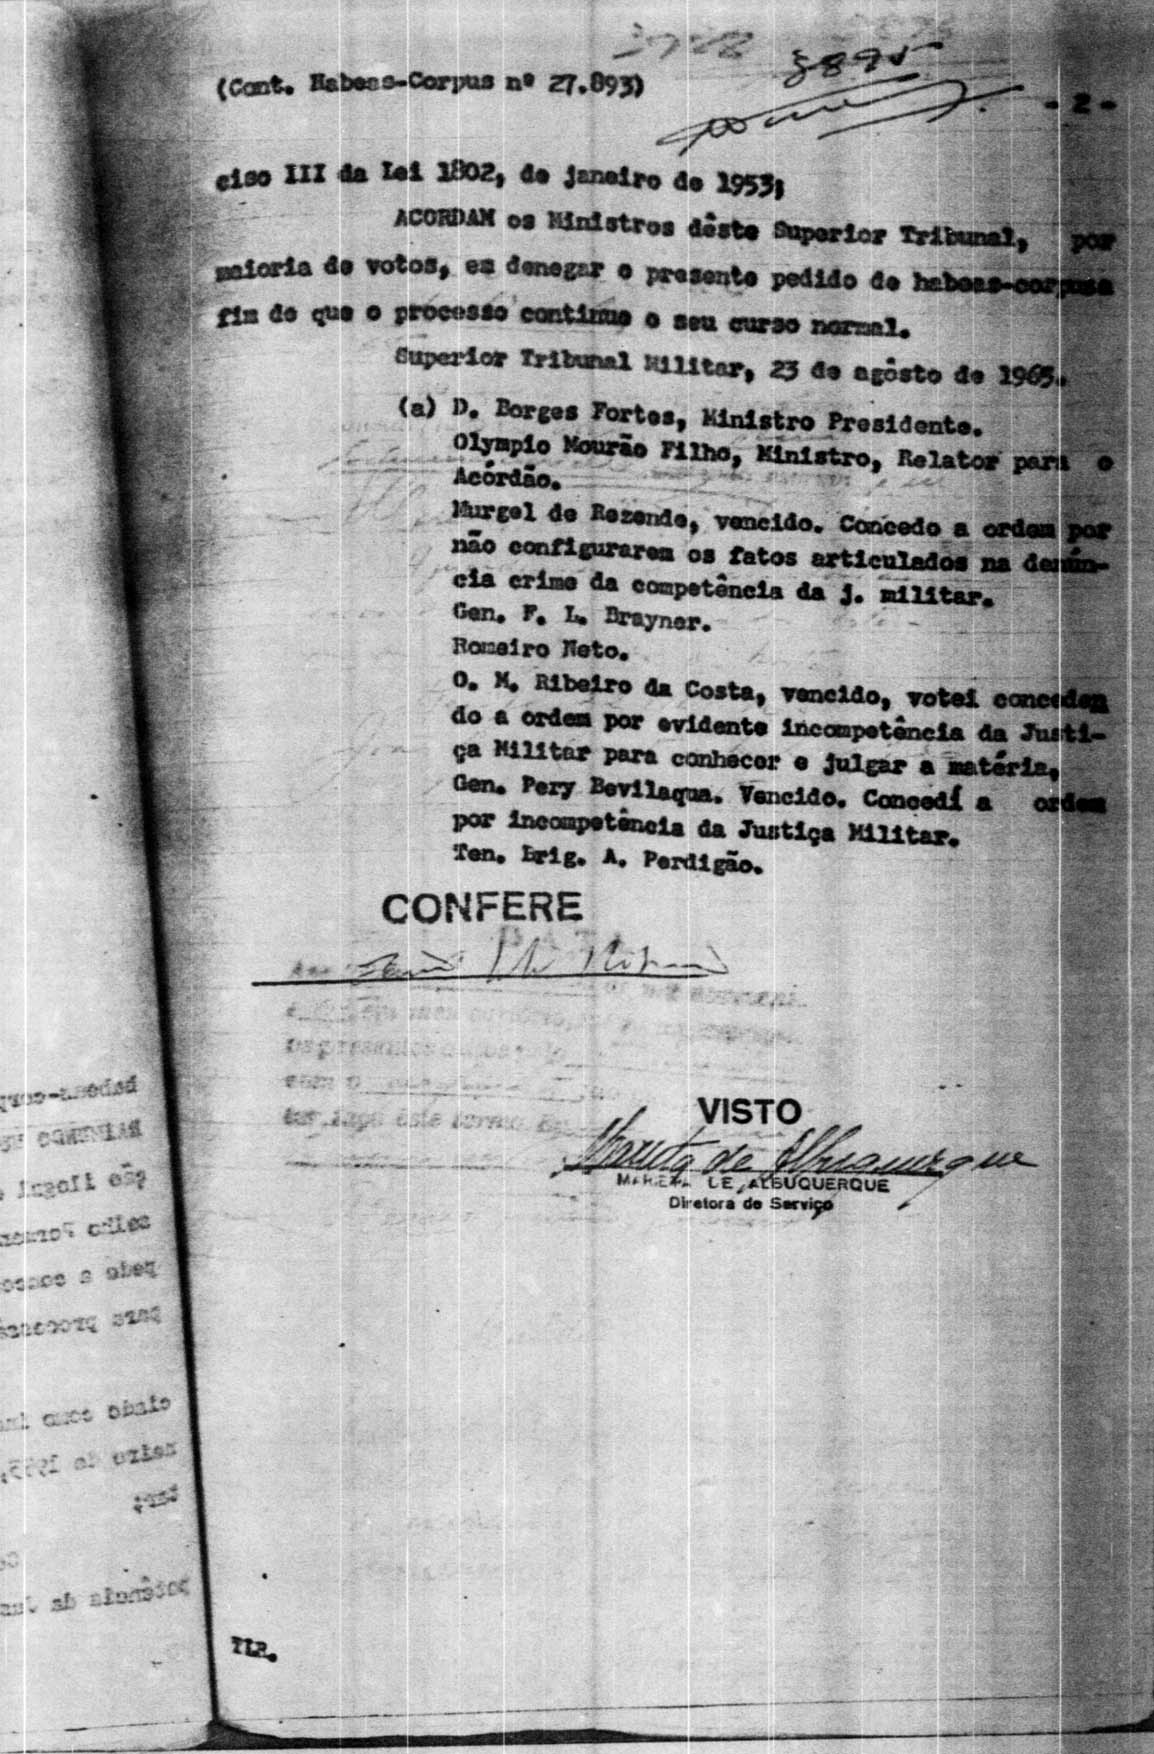 3895
(Cont. Habeas-Corpus nº 27.893)
- 2 -
ciso III da Lei 1802, de janeiro de 1953;
ACORDAM os Ministros dêste Superior Tribunal, por
maioria de votos, em denegar o presente pedido de habeas-corpusa
fim de que o processo continue o seu curso normal.
Superior Tribunal Militar, 23 de agôsto de 1965.
(a) D. Borges Fortes, Ministro Presidente.
Olympio Mourão Filho, Ministro, Relator para o
Acórdão.
Murgel de Rezende, vencido. Concedo a ordem por
não configurarem os fatos articulados na denún-
cia crime da competência da j. militar.
Gen. F. L. Brayner.
Romeiro Neto.
O. M. Ribeiro da Costa, vencido, votei conceden
do a ordem por evidente incompetência da Justi-
ça Militar para conhecer e julgar a matéria,
Gen. Pery Bevilaqua. Vencido. Concedí a ordem
por incompetência da Justiça Militar.
Ten. Brig. A. Perdigão.
CONFERE
VISTO
Marieta de Albuquerque
MARIETA DE ALBUQUERQUE
Diretora de Serviço
TLR.